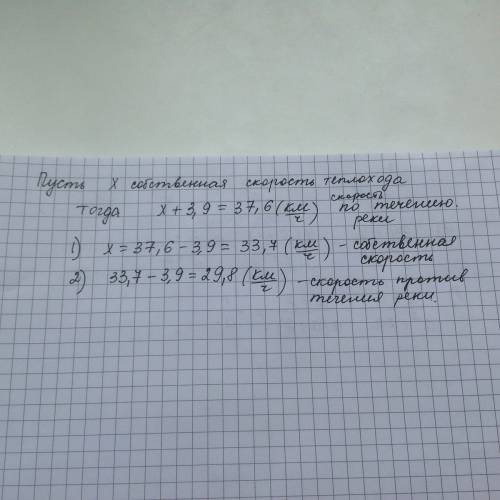 Пусть x собственная скорость теплохода
тогда x + 3,9 = 37,6 (км/ч) скорость по течению реки
1) x = 37,6 - 3,9 = 33,7 (км/ч) - собственная скорость
2) 33,7 - 3,9 = 29,8 (км/ч) - скорость против течения реки.